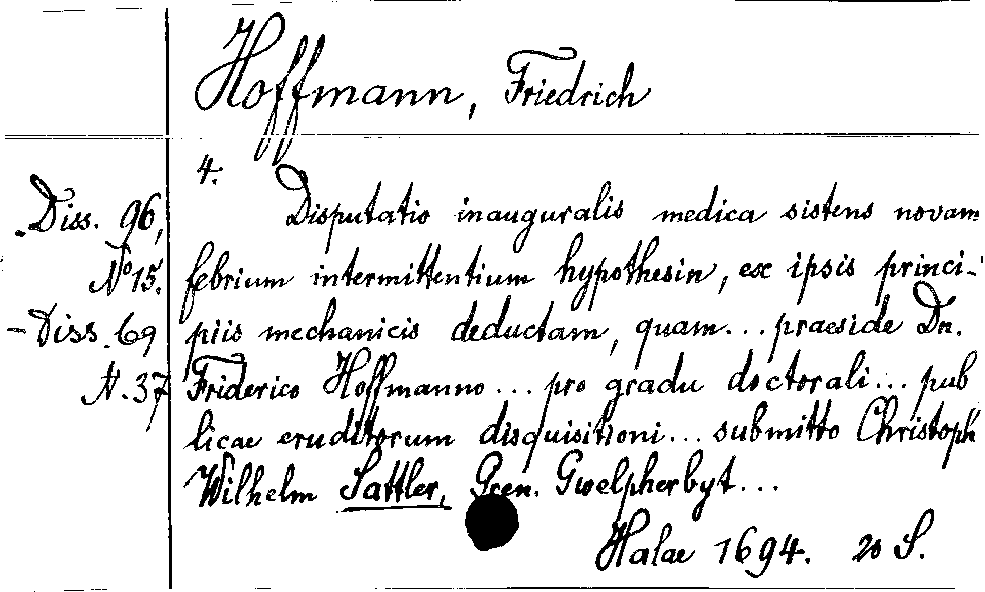 Hoffmann, Friedrich
4.
Diss. 96,
No 15.
- Diss. 69
N. 37
Disputatio inauguralis medica sistens novam
febrium intermittentium hypothesin, ex ipsis princi-
piis mechanicis deductam, quam... praeside Dn.
Friderico Hoffmanno... pro gradu doctorali... pub
licae eruditorum disquisitioni... submitto Christoph
Wilhelm Sattler, Gwelpherbyt...
Halae 1694. 20 S.